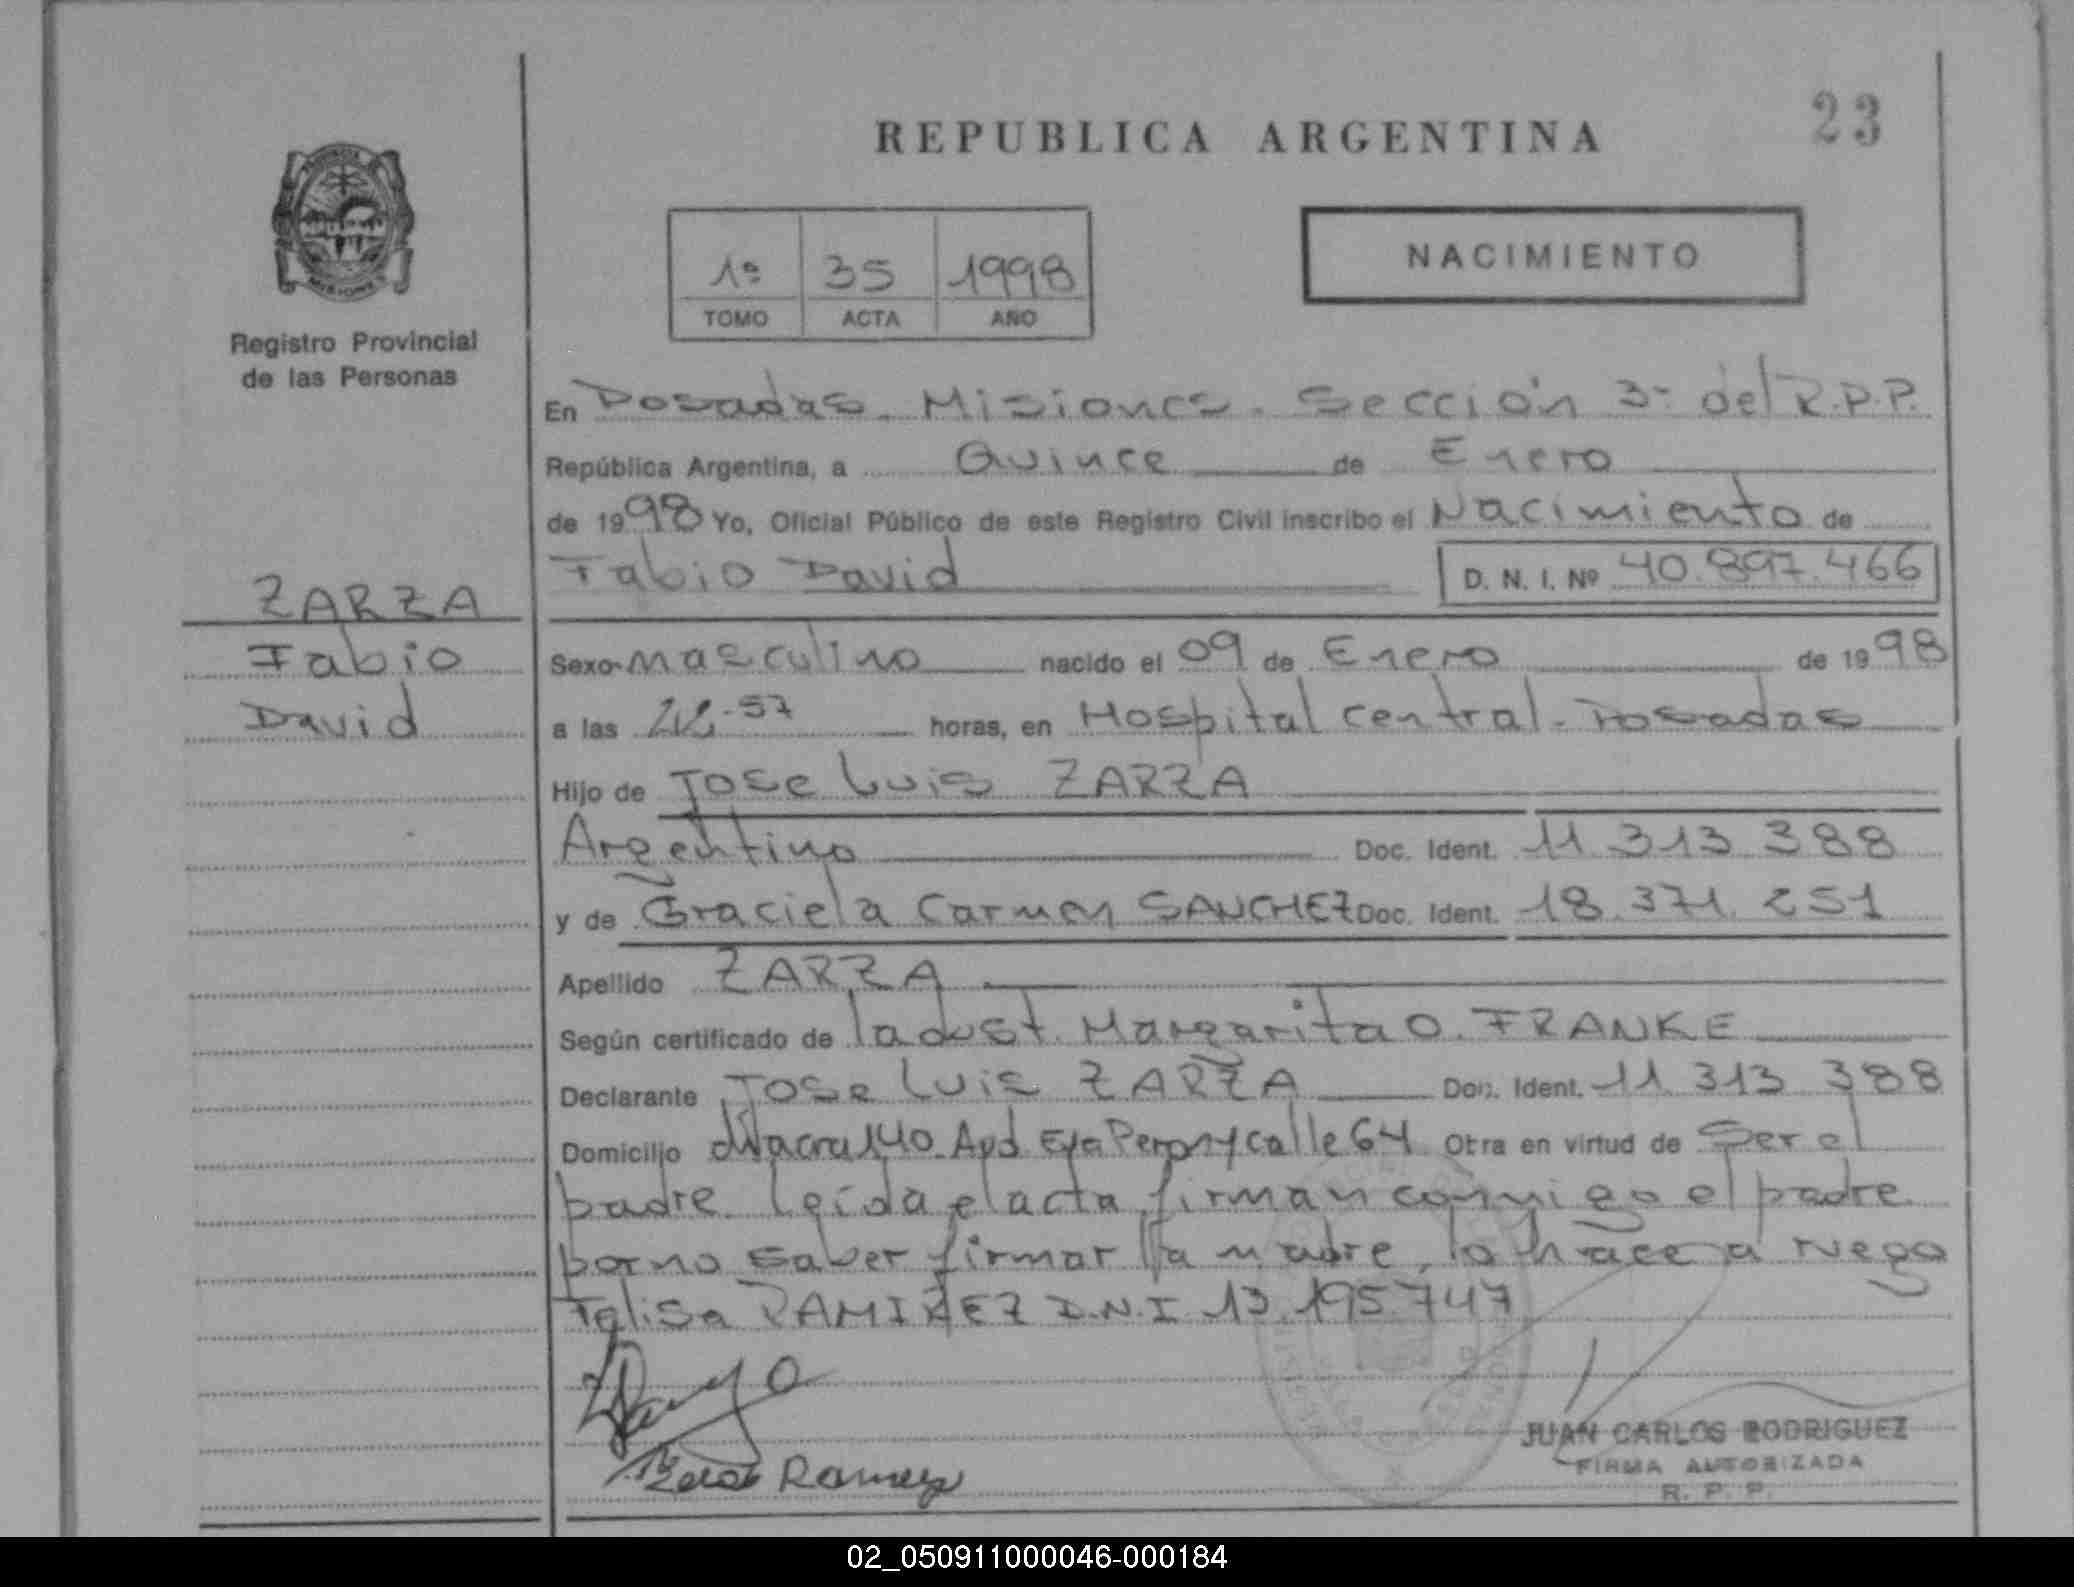 REPUBLICA ARGENTINA
23
NACIMIENTO
1º 35 1998
TOMO ACTA AÑO
MISIONES
Registro Provincial
de las Personas
ZARZA
Fabio
David
En Posadas. Misiones. Sección 3º del R.P.P.
República Argentina, a Quince de Enero
de 1998 Yo, Oficial Público de este Registro Civil inscribo el Nacimiento de
Fabio David D. N. I. Nº 40.897.466
Sexo Masculino nacido el 09 de Enero de 1998
a las 57 horas, en Hospital Central - Posadas
Hijo de Jose Luis ZARZA
Argentino Doc. Ident. 11 313 388
y de Graciela Carmen SANCHEZ Doc. Ident. 18.371.251
Apellido ZARZA
Según certificado de la obst. Margarita O. FRANKE
Declarante Jose Luis ZARZA Doc. Ident. 11 313 388
Domicilio chacra 140 Eva Peron y calle 64 Otra en virtud de Ser el
padre. Leída el acta firman conmigo el padre
por no saber firmar la madre, lo hace a ruego
RAMIREZ D.N.I 13.195.747
Ramirez
JUAN CARLOS RODRIGUEZ
FIRMA AUTORIZADA
R. P. P.
02_050911000046-000184